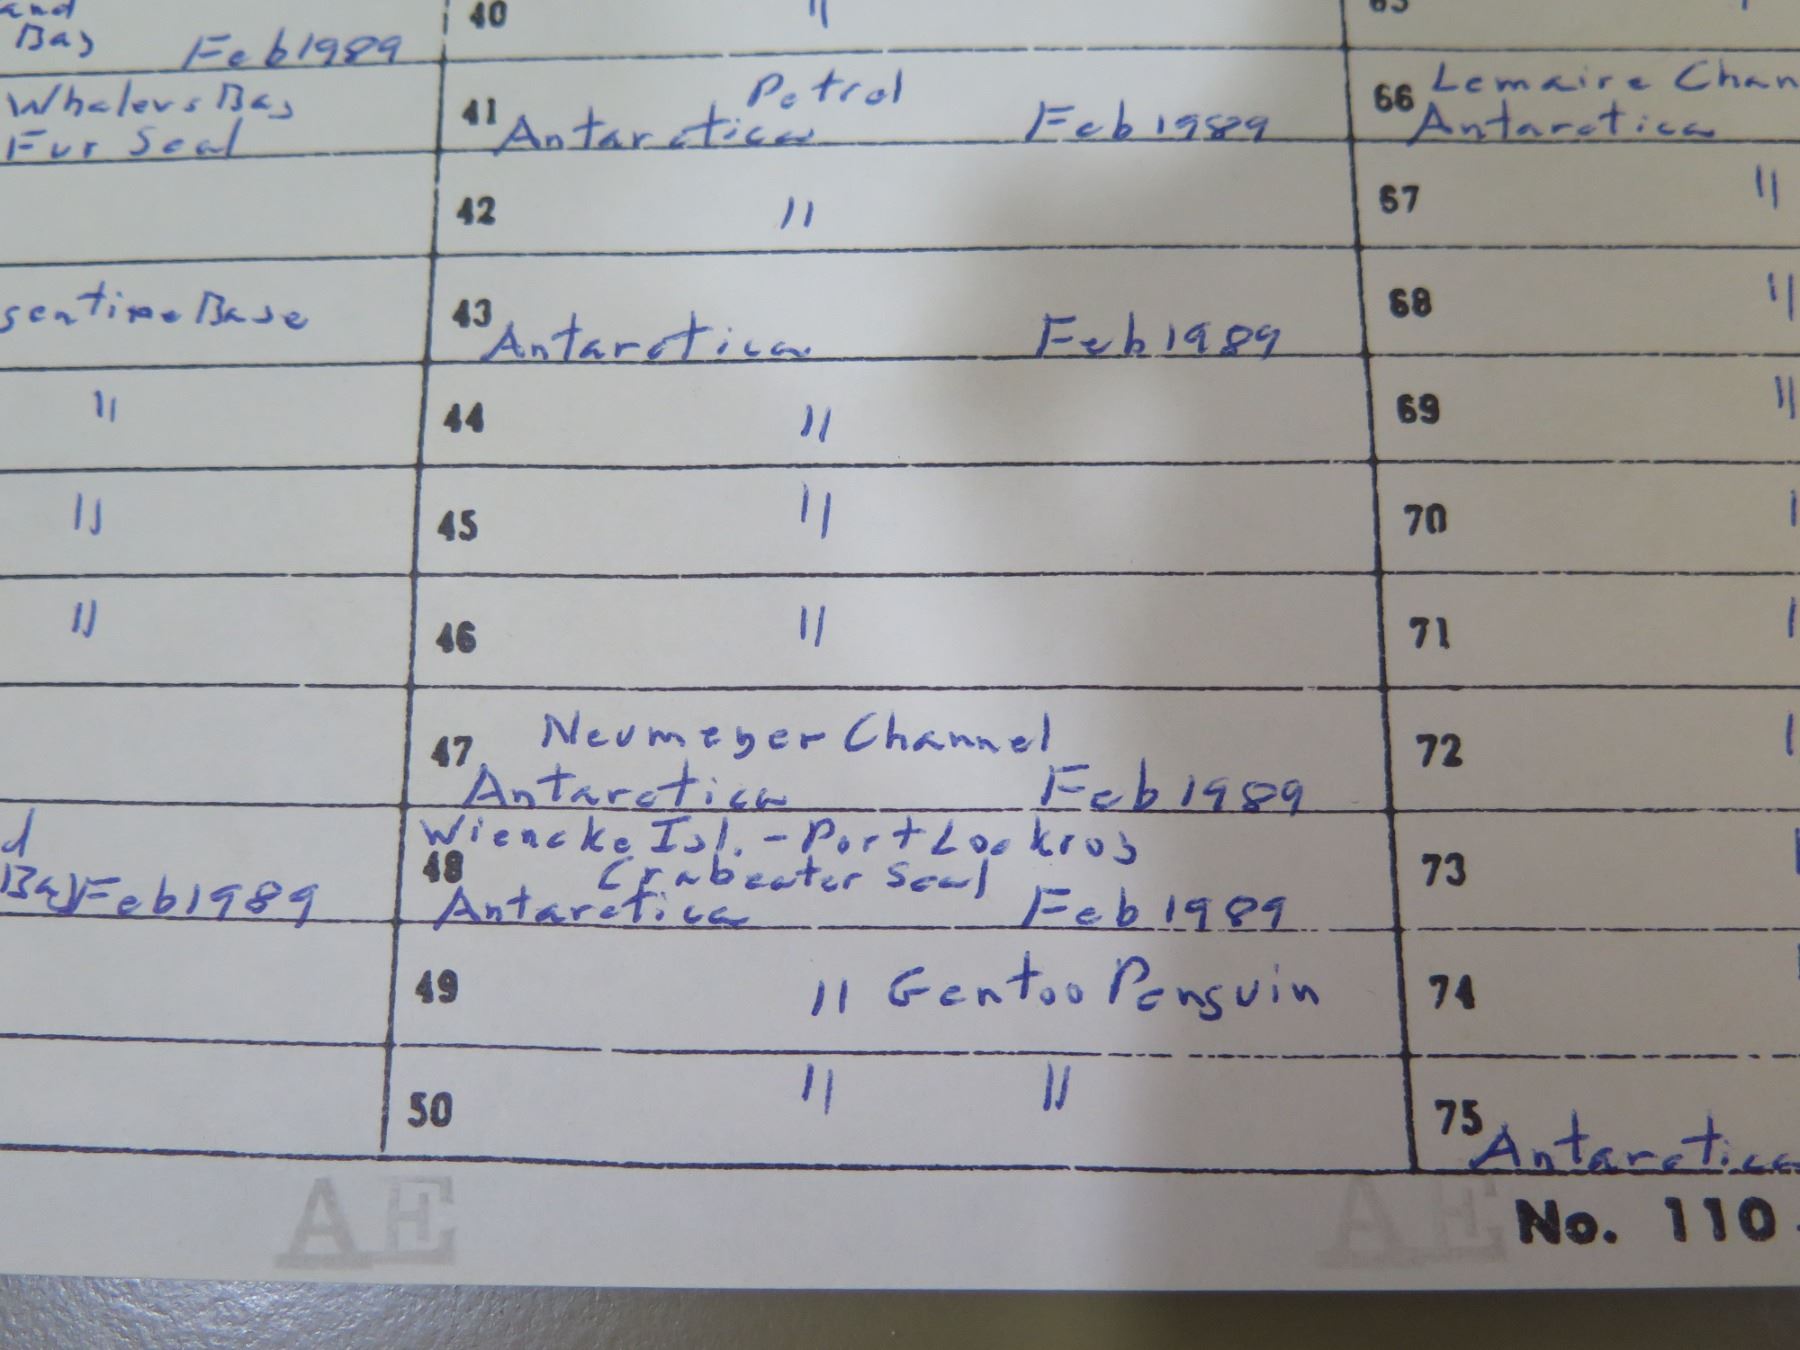 and
Bay Feb 1989
Whalers Bay
Fur Seal
gentine Base
"
"
"
d
Bay Feb 1989
40 "
41 Petrel
Antarctica Feb 1989
42 "
43 Antarctica Feb 1989
44 "
45 "
46 "
47 Neumeyer Channel
Antarctica Feb 1989
Wiencke Isl. - Port Lockroy
48 Crabeater Seal
Antarctica Feb 1989
49 " Gentoo Penguin
50 " "
65
66 Lemaire Chan
Antarctica
67 "
68 "
69 "
70
71
72
73
74
75 Antarctica
AE AE
No. 110